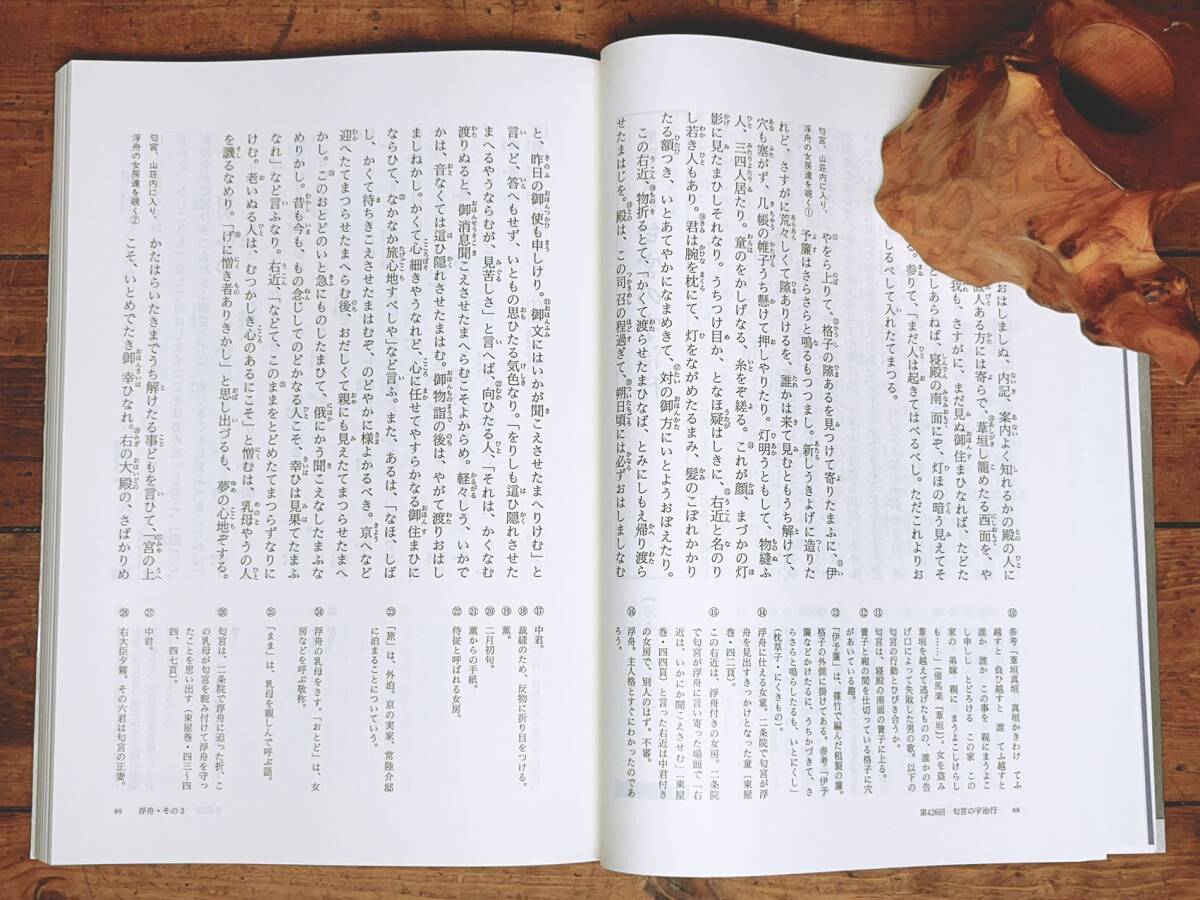 おはしましぬ、内記、案内よく知れるかの殿の人に
直人ある方には寄らで、葦垣し籠めたる西面を、や
我も、さすがに、まだ見ぬ御住まひなれば、たどた
としあらねば、寝殿の南面にぞ、灯ほの暗う見えてそ
参りて、「まだ人は起きてはべるべし。ただこれよりお
しるべして入れたてまつる。
匂宮、山荘内に入り、
浮舟の女房達を覗く①
やをら上りて、格子の隙あるを見つけて寄りたまふに、伊
予簾はさらさらと鳴るもつつまし。新しうきよげに造りた
れど、さすがに荒々しくて隙ありけるを、誰かは来て見むともうち解けて、
穴も塞がず、几帳の帷子うち懸けて押しやりたり。灯明うともして、物縫ふ
人、三四人居たり。童のをかしげなる、糸をぞ縒る。これが顔、まづかの灯
影に見たまひしそれなり。うちつけ目か、となほ疑はしきに、右近と名のり
し若き人もあり。君は腕を枕にて、灯をながめたるまみ、髪のこぼれかかり
たる額つき、いとあてやかになまめきて、対の御方にいとようおぼえたり。
この右近、物折るとて、「かくて渡らせたまひなば、とみにしもえ帰り渡ら
せたまはじを。殿は、この司召の程過ぎて、朔日頃には必ずおはしましなむ
⑩ 参考「葦垣真垣 真垣かきわけ てふ
越すと 負ひ越すと 誰 てふ越すと
誰か 誰か この事を 親にまうよこ
し申しし とどろける この家 この
家の 弟嫁 親に まうよこしけらし
も……」(催馬楽「葦垣」)。女を盗み
葦垣を越えて逃げたものの、誰かの告
げ口によって失敗した男の歌。以下の
匂宮の行動とひびき合うか。
⑪ 匂宮は、寝殿の南面の簀子に上る。
⑫ 簀子と廂の間を仕切っている格子に穴
があいている趣。
⑬ 「伊予簾」は、篠竹で編んだ粗製の簾。
格子の外側に掛けてある。参考「伊予
簾などかけたるに、うちかづきて、さ
らさらと鳴らしたるも、いとにくし」
(枕草子・にくきもの)。
⑭ 浮舟に仕える女童。二条院で匂宮が浮
舟を見出すきっかけとなった童(東屋
巻・四二頁)。
⑮ この右近は、浮舟付きの女房。二条院
で匂宮が浮舟に言い寄った場面で「右
近は、いかにか聞こえさせむ」(東屋
巻・四四頁)と言った右近は中君付き
の女房で、別人のはず。不審。
⑯ 浮舟。主人格とすぐにわかったのであ
ろう。
第426回 匂宮の宇治行 88
と、昨日の御使も申しけり。御文にはいかが聞こえさせたまへりけむ」と
言へど、答へもせず、いともの思ひたる気色なり。「をりしも這ひ隠れさせた
まへるやうならむが、見苦しさ」と言へば、向ひたる人、「それは、かくなむ
渡りぬると、御消息聞こえさせたまへらむこそよからめ。軽々しう、いかで
かは、音なくては這ひ隠れさせたまはむ。御物詣の後は、やがて渡りおはし
ましねかし。かくて心細きやうなれど、心に任せてやすらかなる御住まひに
ならひて、なかなか旅心地すべしや」など言ふ。また、あるは、「なほ、しば
し、かくて待ちきこえさせたまはむぞ、のどやかに様よかるべき。京へなど
迎へたてまつらせたまへらむ後、おだしくて親にも見えたてまつらせたまへ
かし。このおとどのいと急にものしたまひて、俄にかう聞こえなしたまふな
めりかし。昔も今も、もの念じしてのどかなる人こそ、幸ひは見果てたまふ
なれ」など言ふなり。右近、「などて、このままをとどめたてまつらずなりに
けむ。老いぬる人は、むつかしき心のあるにこそ」と憎むは、乳母やうの人
を譏るなめり。「げに憎き者ありきかし」と思し出づるも、夢の心地ぞする。
匂宮、山荘内に入り、
浮舟の女房達を覗く②
かたはらいたきまでうち解けたる事どもを言ひて、「宮の上
こそ、いとめでたき御幸ひなれ。右の大殿の、さばかりめ
⑰ 中君。
⑱ 裁縫のため、反物に折り目をつける。
⑲ 薫。
⑳ 二月初旬。
㉑ 薫からの手紙。
㉒ 侍従と呼ばれる女房。
㉓ 「旅」は、外泊。京の実家、常陸介邸
に泊まることについていう。
㉔ 浮舟の乳母をさす。「おとど」は、女
房などを呼ぶ敬称。
㉕ 「まま」は、乳母を親しんで呼ぶ語。
㉖ 匂宮は、二条院で浮舟に迫った折、こ
の乳母が匂宮を睨み付けて浮舟を守っ
たことを思い出す(東屋巻・四三~四
四、四七頁)。
㉗ 中君。
㉘ 右大臣夕霧。その六君は匂宮の正妻。
89 浮舟・その3